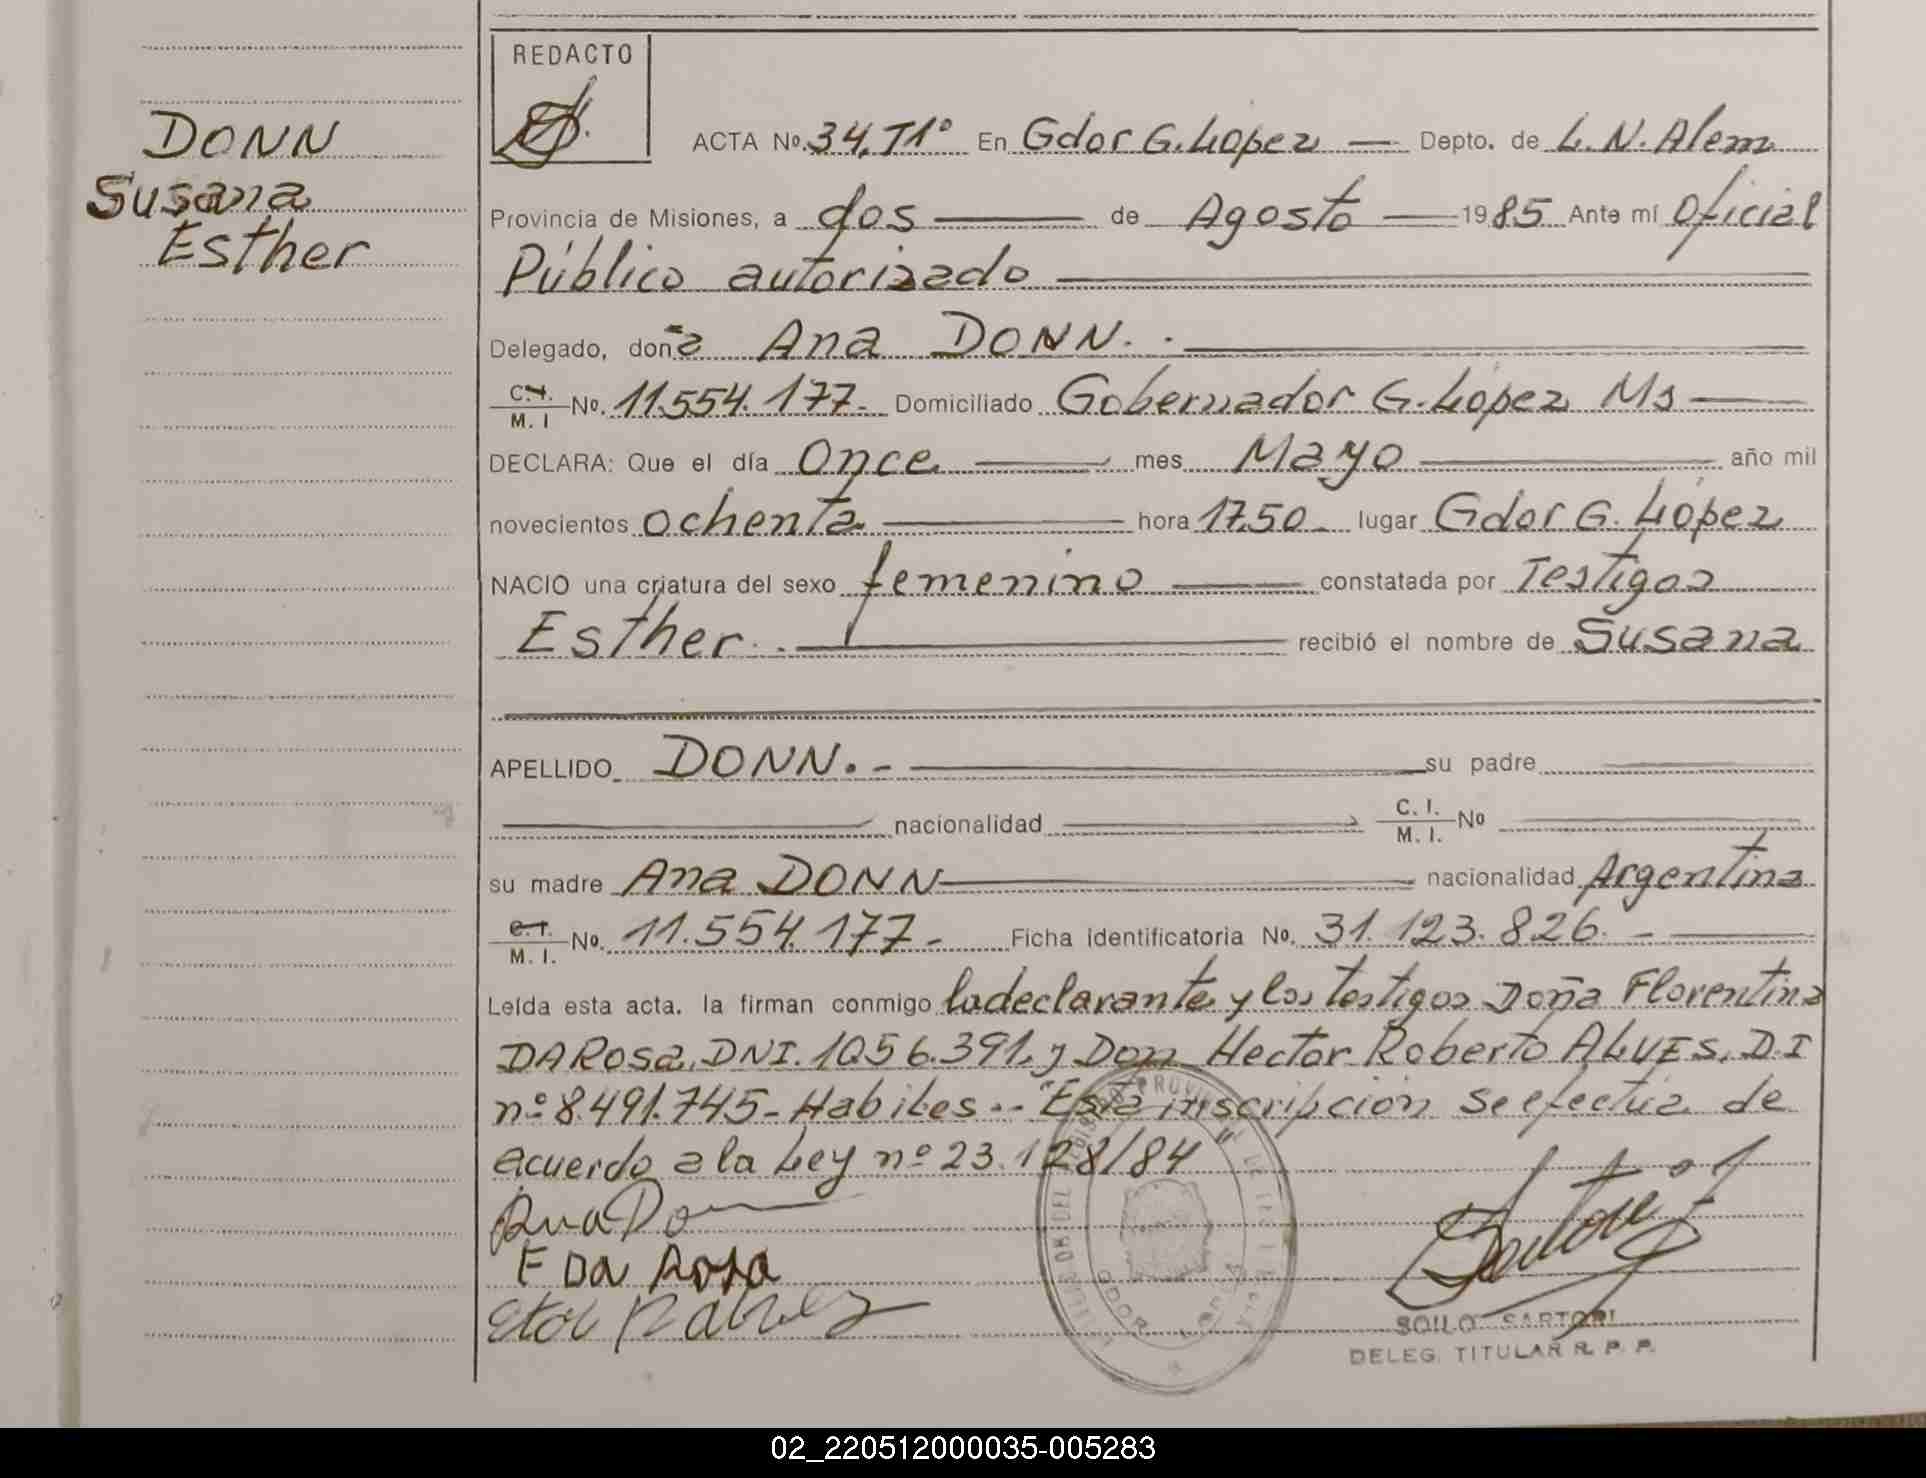 DONN
Susana
Esther
REDACTO
ACTA No. 34, T1° En Gdor G. López — Depto. de L. N. Alem
Provincia de Misiones, a dos — de Agosto — 1985 Ante mí Oficial
Público autorizado
Delegado, doña Ana DONN. -
C.I. / M. I No. 11.554.177.- Domiciliado Gobernador G. López Ms —
DECLARA: Que el día Once — mes Mayo — año mil
novecientos ochenta — hora 17,50 lugar Gdor G. López
NACIO una criatura del sexo femenino — constatada por Testigos
Esther. - — recibió el nombre de Susana
APELLIDO DONN. - — su padre —
— nacionalidad — C. I. / M. I. No —
su madre Ana DONN — nacionalidad Argentina
C.I. / M. I. No. 11.554.177.- Ficha identificatoria No. 31.123.826. - —
Leída esta acta. la firman conmigo la declarante y los testigos Doña Florentina
DA ROSA, DNI. 1056.391, y Don Hector Roberto ALVES, D.I
nº 8.491.745 - Habiles. - "Esta inscripción se efectúa de
acuerdo a la Ley nº 23.128/84"
Ana Don
F DA ROSA
SOILO SARTORI
DELEG. TITULAR R. P. P.
02_220512000035-005283